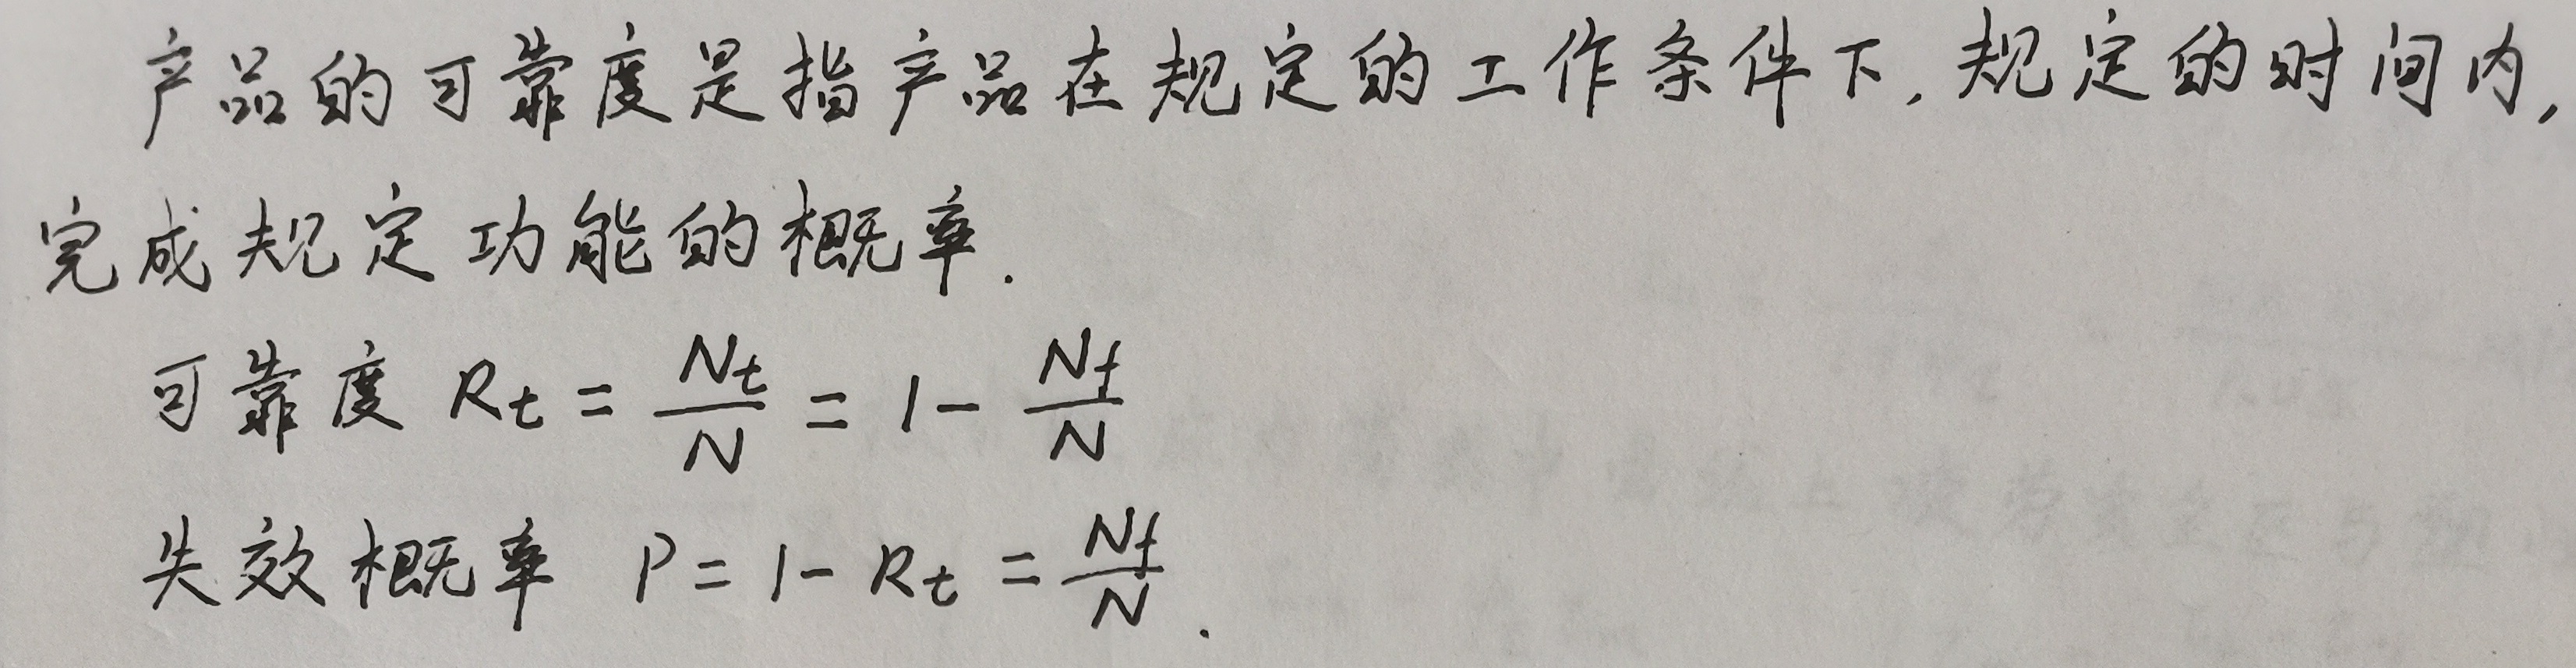 产品的可靠度是指产品在规定的工作条件下,规定的时间内,
完成规定功能的概率.
可靠度 Rt = Nt/N = 1 - Nf/N
失效概率 P = 1 - Rt = Nf/N.